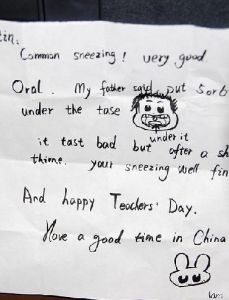 tin:
Common sneezing! very good
Oral. My father said put sorb
under the tase
under it
it tast bad but after a sh
thime. your sneezing well fin
And happy Teachers' Day.
Have a good time in China